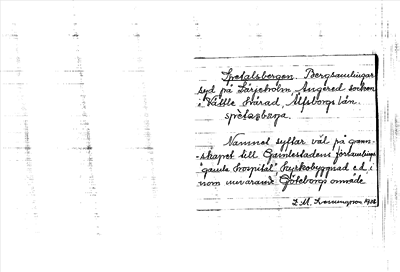 Spetalsbergen. Bergsamlingar
syd på Lärjeholm, Angered socken
i Vättle härad, Älfsborgs län.
spètasbærja.
Namnet syftar väl på gran-
-skapet till Gamlestadens församlings
"gamla hospital", kyrkobyggnad e.d. i
nom nuvarande Göteborgs område